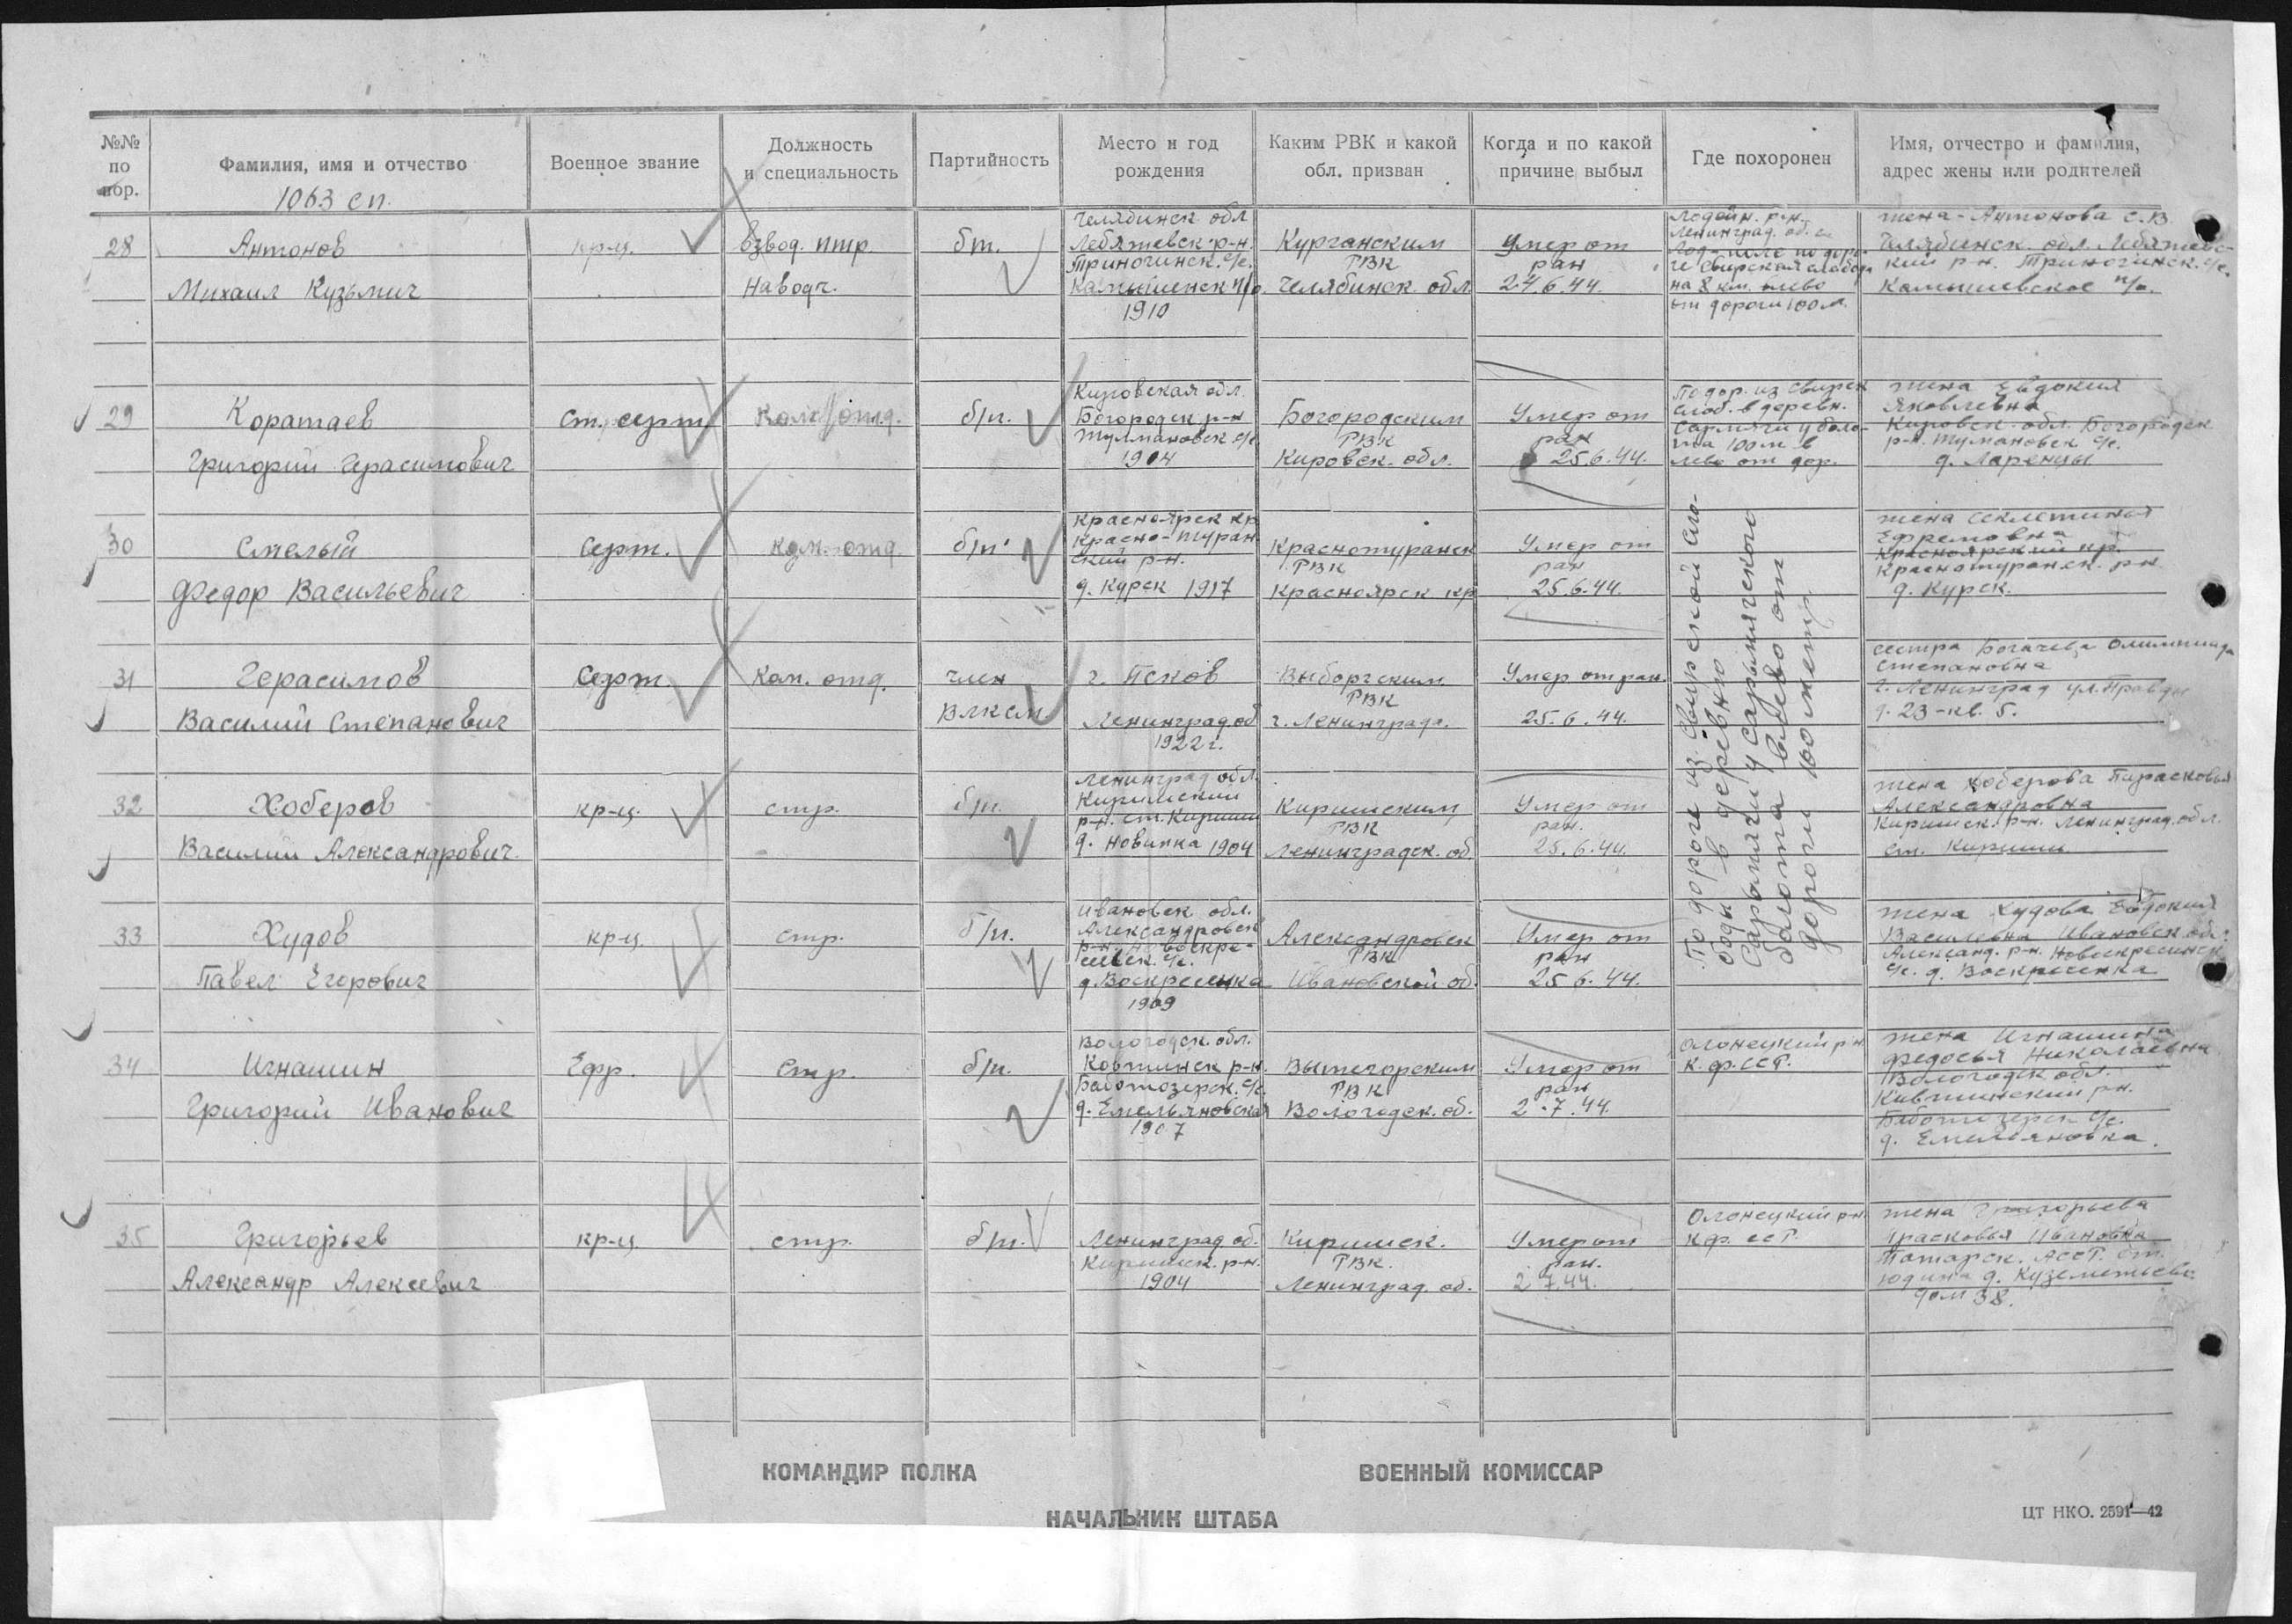 №№ по пор.
Фамилия, имя и отчество
Военное звание
Должность и специальность
Партийность
Место и год рождения
Каким РВК и какой обл. призван
Когда и по какой причине выбыл
Где похоронен
Имя, отчество и фамилия, адрес жены или родителей
1063 сп.
28
Антонов
Михаил Кузьмич
кр-ц.
взвод. птр
Наводч.
бп.
Челябинск обл
Лебяжевск. р-н.
Камышенск п/о.
1910
Курганским
РВК
Челябинск. обл
Умер от
ран
24.6.44.
Лодейн. р-н.
Ленинград. об.
на 8 км. влево
от дороги 100 м.
жена - Антонова С.В.
Челябинск. обл. Лебяжевс-
кий р-н.
Камышевское п/о.
29
Коратаев
Григорий Герасимович
Ст. серж.
Ком. отд.
б/п.
Кировская обл.
Богородск р-н
1904
Богородским
РВК
Кировск. обл.
Умер от
ран
25.6.44.
По дор. из Свирск
слоб. в деревн.
Сармяги у боло-
та 100 м. в
лево от дор.
жена Евдокия
Яковлевна
Кировск. обл. Богородск
р-н. Тумановск с/с.
д. Ларенцы
30
Смелый
Федор Васильевич
Серж.
ком. отд.
б/п
Красноярск кр
Красно-Туран
ский р-н.
д. Курск 1917
Краснотуранск
РВК
Красноярск кр
Умер от
ран
25.6.44.
жена Секлетинья
Ефремовна
Красноярский кр.
Краснотуранск. рн
д. Курск.
31
Герасимов
Василий Степанович
Серж.
Ком. отд.
член
ВЛКСМ
г. Псков
Ленинград. об
1922 г.
Выборгским
РВК
г. Ленинграда.
Умер от ран.
25.6.44.
По дороге из Свирской сло-
боды в деревню
у Сармяжского
болота влево от
дороги 100 метр.
сестра Богачева Олимпиада
Степановна
г. Ленинград ул. Правды
д. 23 - кв. 5.
32
Хоберов
Василий Александрович.
кр-ц.
стр.
б/п.
Ленинград обл.
Киришский
р-н. ст. Кириши
д. Новинка 1904
Киришским
РВК
Ленинградск. об
Умер от
ран.
25.6.44.
жена Хоберова Парасковья
Александровна
Киришск. р-н. Ленинград. обл.
ст. Кириши
33
Худов
Павел Егорович
кр-ц.
стр.
б/п.
Ивановск обл.
Александровск
д. Воскресенка
1909
Александровск
РВК
Ивановской об.
Умер от
ран
25.6.44.
жена Худова Евдокия
Василевна Ивановск обл.
Александ. р-н. Новоскресинск
с/с. д. Воскресенка
34
Игнашин
Григорий Иванович
Ефр.
Стр.
б/п.
Вологодск. обл.
Ковжинск р-н.
д. Емельяновская
1907
Вытегорским
РВК
Вологодск. об.
Умер от
ран
2.7.44.
Олонецкий рн
К. ф. ССР.
жена Игнашина
Федосья Николаевна
Вологодск обл.
Ковжинский рн.
д. Емельяновка.
35
Григорьев
Александр Алексеевич
кр-ц.
стр.
б/п.
Ленинград об.
Киришск. р-н.
1904
Киришск.
РВК.
Ленинград. об.
Умер от
ран.
2.7.44.
Олонецкий рн.
Кф. ССР.
жена Григорьева
Прасковья Ивановна
Татарск. АССР. ст.
Юдина д. Куземетьево
дом 38.
КОМАНДИР ПОЛКА
ВОЕННЫЙ КОМИССАР
НАЧАЛЬНИК ШТАБА
ЦТ НКО. 2591—42